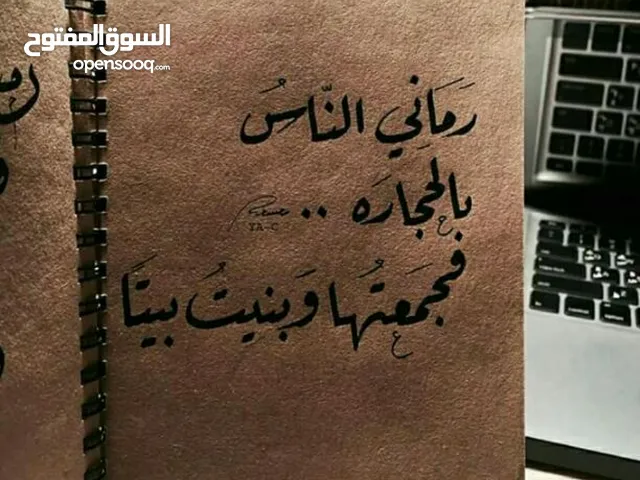 السوق المفتوح
opensooq.com
رَمَانِي النَّاسُ
بالحجارَه ..
TA-C
فجَمَعتُها وَبنيتُ بيتًا